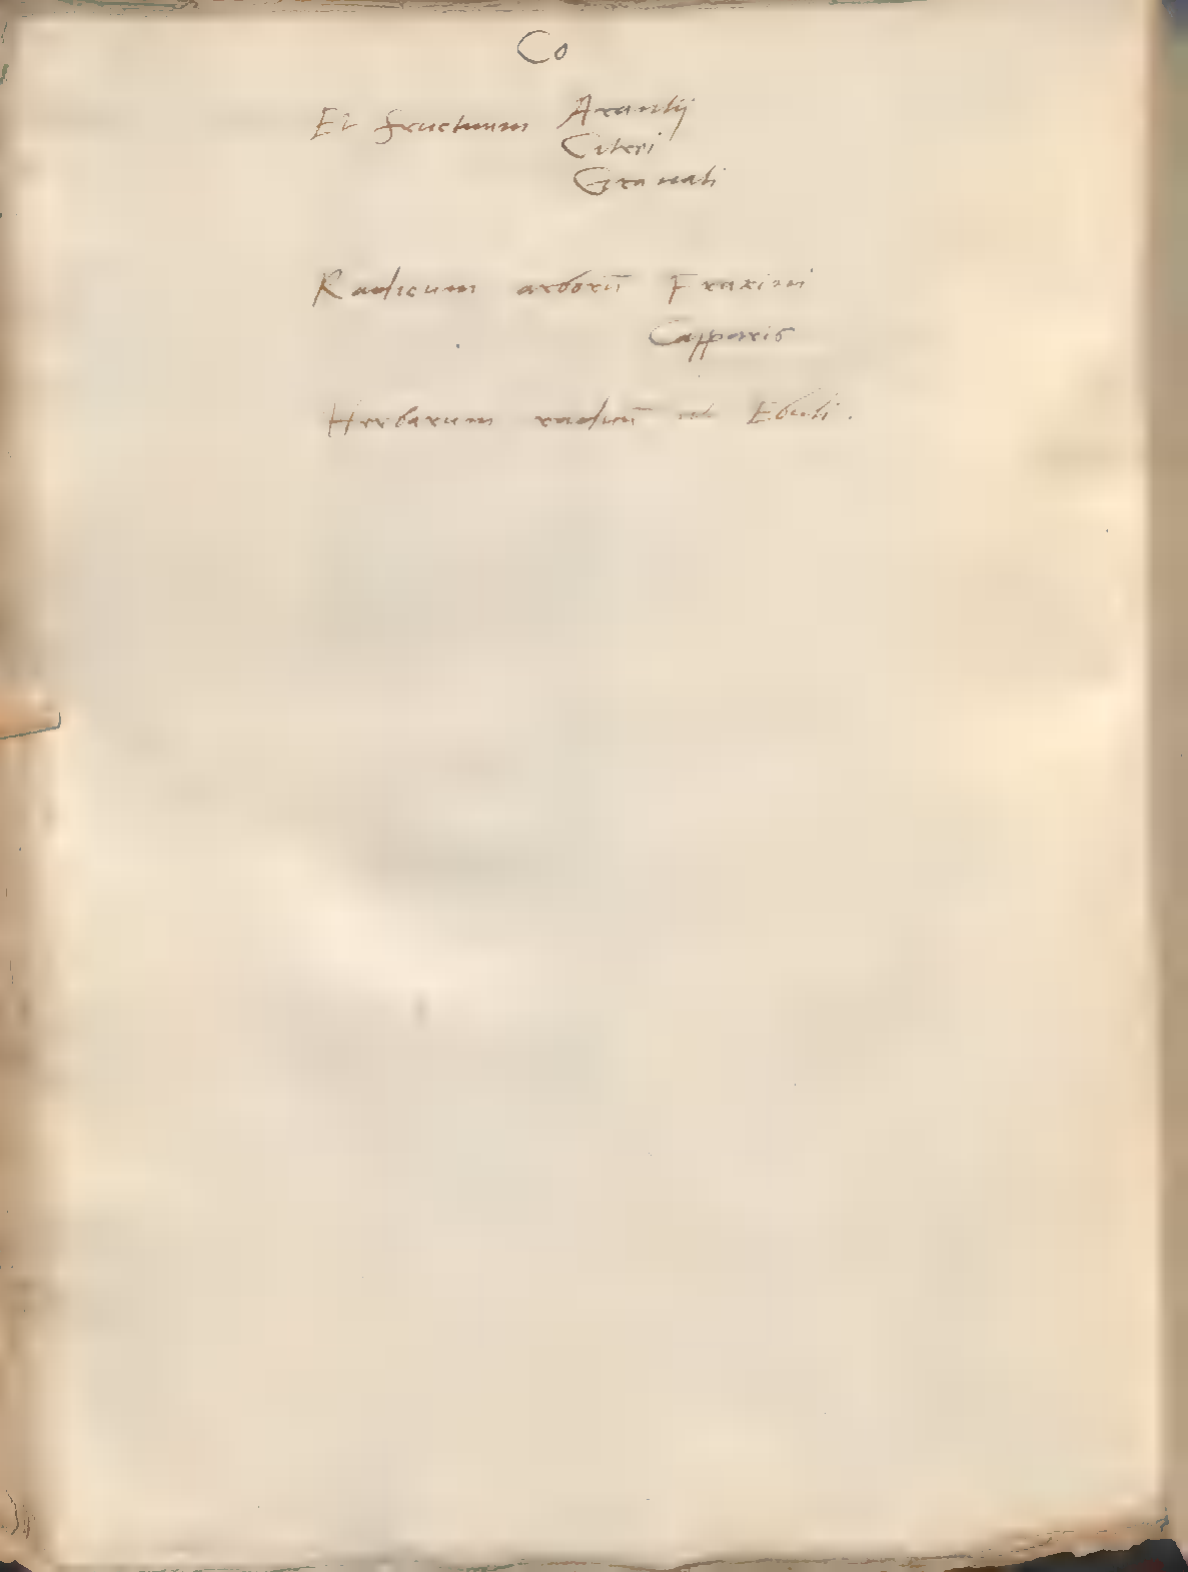 Co
Et fructuum Arantij
Citri
Granati
Radicum arborū Fraxini
Capparis
Herbarum radicū ut Ebuli.